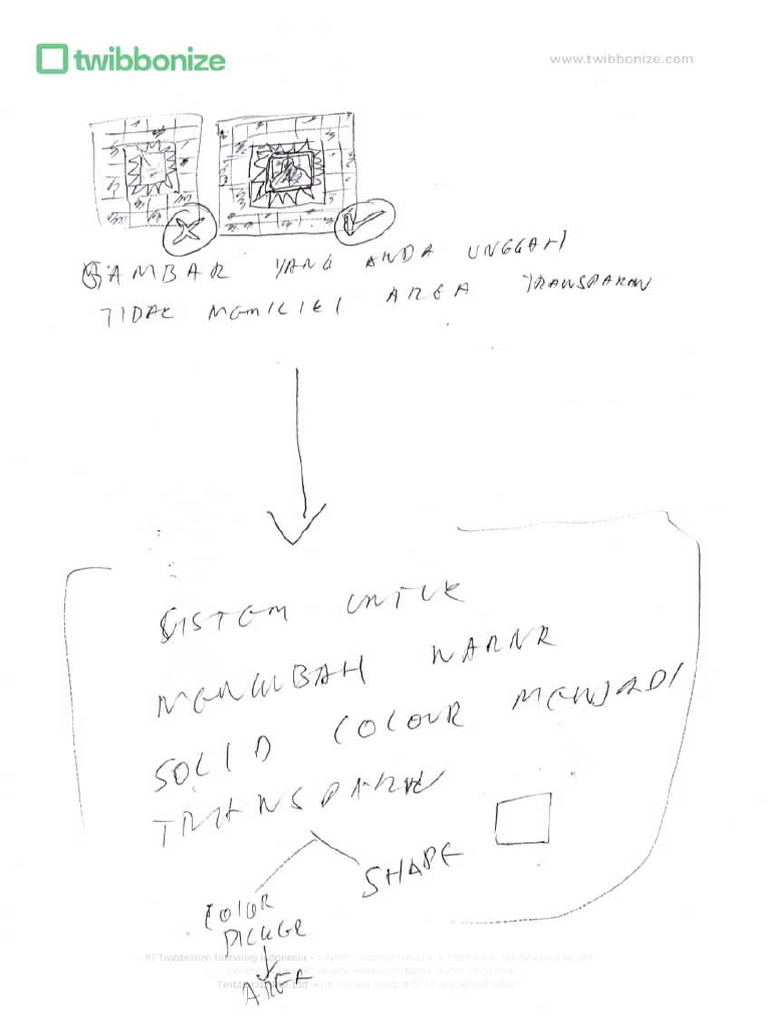 twibbonize
www.twibbonize.com
GAMBAR YANG ANDA UNGGAH
TIDAK MEMILIKI AREA TRANSPARAN
SISTEM UNTUK
MENGUBAH WARNA
SOLID COLOUR MENJADI
TRANSPARAN
SHAPE
COLOR
PICKER
PT Twibbonize Teknologi Indonesia
AREA